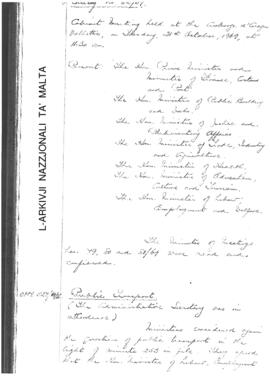 L-ARKIVJI NAZZJONALI TA' MALTA
Cabinet Meeting held at the Auberge d'Aragon
Valletta, on Tuesday, 21st October, 1969, at
11.30 am.
Present: The Hon. Prime Minister and
Minister of Finance, Customs
and Port
The Hon. Minister of Public Building
and Works.
The Hon. Minister of Justice and
Parliamentary Affairs
The Hon. Minister of Trade, Industry
and Agriculture.
The Hon. Minister of Health,
The Hon. Minister of Education,
Culture and Tourism.
The Hon. Minister of Labour,
Employment and Welfare.
The Minutes of Meetings
Nos. 49, 50 and 51/69 were read and
confirmed.
Public Transport
(The Administrative Secretary was in
attendance)
Ministers considered again
the question of public transport in the
light of minute 253 in file. They agreed
that the Hon. Minister of Labour, Employment